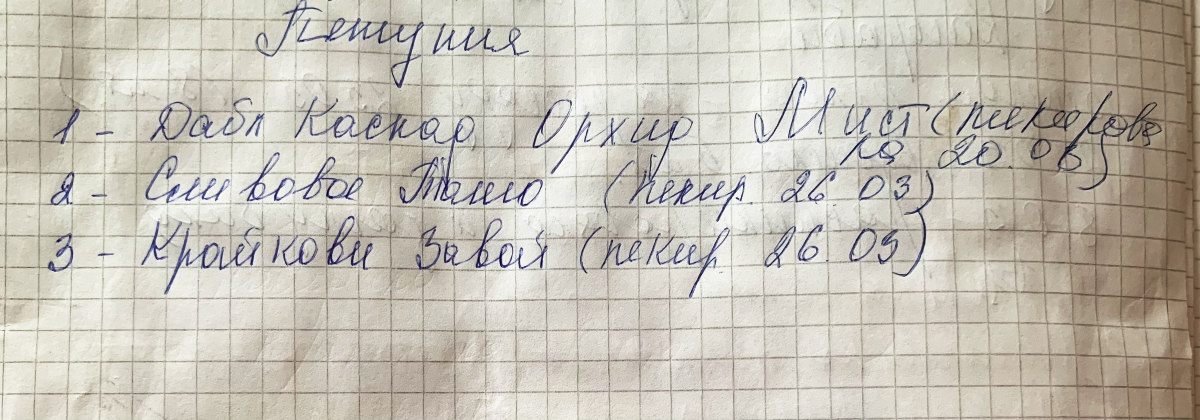 Петуния
1 - Дабл Каскад Орхид Мист (пикирова
ла 20.03)
2 - Сливовое Танго (пекир. 26.03)
3 - Крайкови Завой (пекир. 26.03)